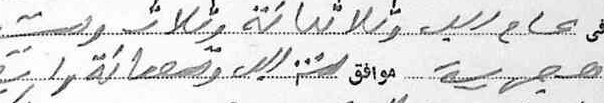 في عام الف وثلاثمائة وثلاث وستة
هجرية موافق سنة الف وتسعمائة واربع